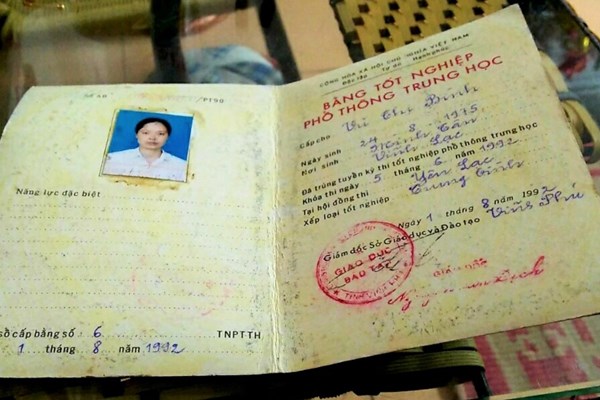 /PT90
Năng lực đặc biệt
sổ cấp bằng số 6 TNPTTH
1 tháng 8 năm 1992
CỘNG HÒA XÃ HỘI CHỦ NGHĨA VIỆT NAM
Độc lập Tự do Hạnh phúc
BẰNG TỐT NGHIỆP
PHỔ THÔNG TRUNG HỌC
Cấp cho Vũ Thị Bình
Ngày sinh 24 - 8 - 1975
Nơi sinh Minh Tân
Vĩnh Lạc
Đã trúng tuyển kỳ thi tốt nghiệp phổ thông trung học
Khóa thi ngày 5 tháng 6 năm 1992
Tại hội đồng thi Yên Lạc
Xếp loại tốt nghiệp Trung bình
Ngày 1 tháng 8 năm 1992
Giám đốc Sở Giáo dục và Đào tạo Vĩnh Phú
GIÁO DỤC
ĐÀO TẠO